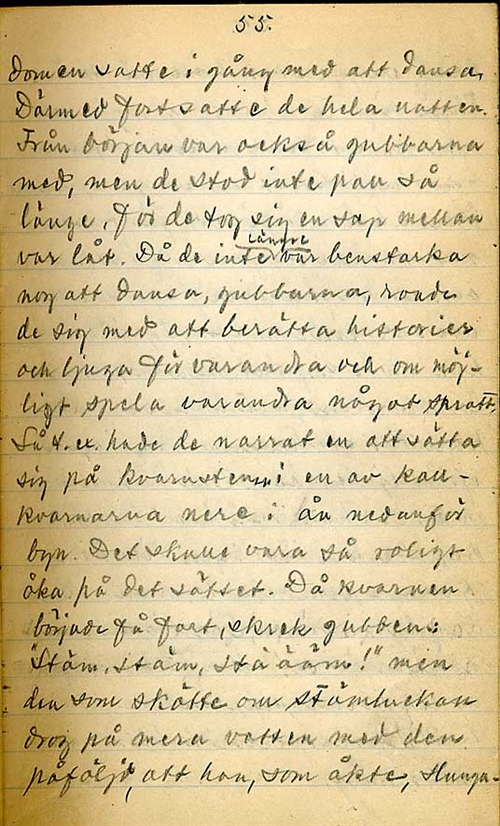 55.
domen satte i gång med att dansa.
Därmed fortsatte de hela natten.
Från början var också gubbarna
med, men de stod inte pau så
länge, för de tog sig en sup mellan
var låt. Då de inte längre var benstarka
nog att dansa, gubbarna, roade
de sig med att berätta historier
och ljuga för varandra och om möj-
ligt spela varandra något spratt.
Så t. ex. hade de narrat en att sätta
sig på kvarnstenen i en av kall-
kvarnarna nere i ån nedanför
byn. Det skulle vara så roligt
åka på det sättet. Då kvarnen
började få fart, skrek gubben:
"Stäm, stäm, stä ä ääm!" men
den som skötte om stämluckan
drog på mera vatten med den
påföljd, att han, som åkte, slunga-